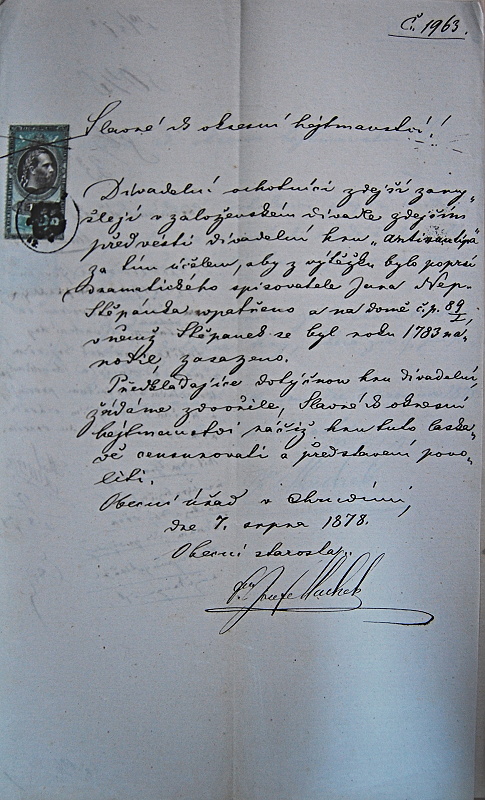 Č. 1963.
Slavné ck okresní hejtmanství!
Divadelní ochotníci zdejší zamý-
šlejí v založenském divadle zdejším
předvésti divadelní hru „
za tím účelem, aby z výtěžku bylo poprsí
dramatického spisovatele Jana Nep.
Štěpánka opatřeno a na domě č.p. 89/I,
v němž Štěpanek se byl roku 1783 na-
rodil, zasazeno.
Předkládajíce dotyčnou hru divadelní,
žádáme zdvořile, Slavné ck okresní
hejtmanství račiž hru tuto laska-
vě censurovati a představení povo-
liti.
Obecní úřad v Chrudimi,
dne 7. srpna 1878.
Obecní starosta:
Josef